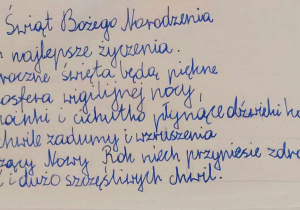 Świąt Bożego Narodzenia
najlepsze życzenia.
roczne święta będą piękne
osfera wigilijnej nocy,
oinki i cichutko płynące dźwięki ko
chwile zadumy i wzruszenia
zący Nowy Rok niech przyniesie zdro
i dużo szczęśliwych chwil.